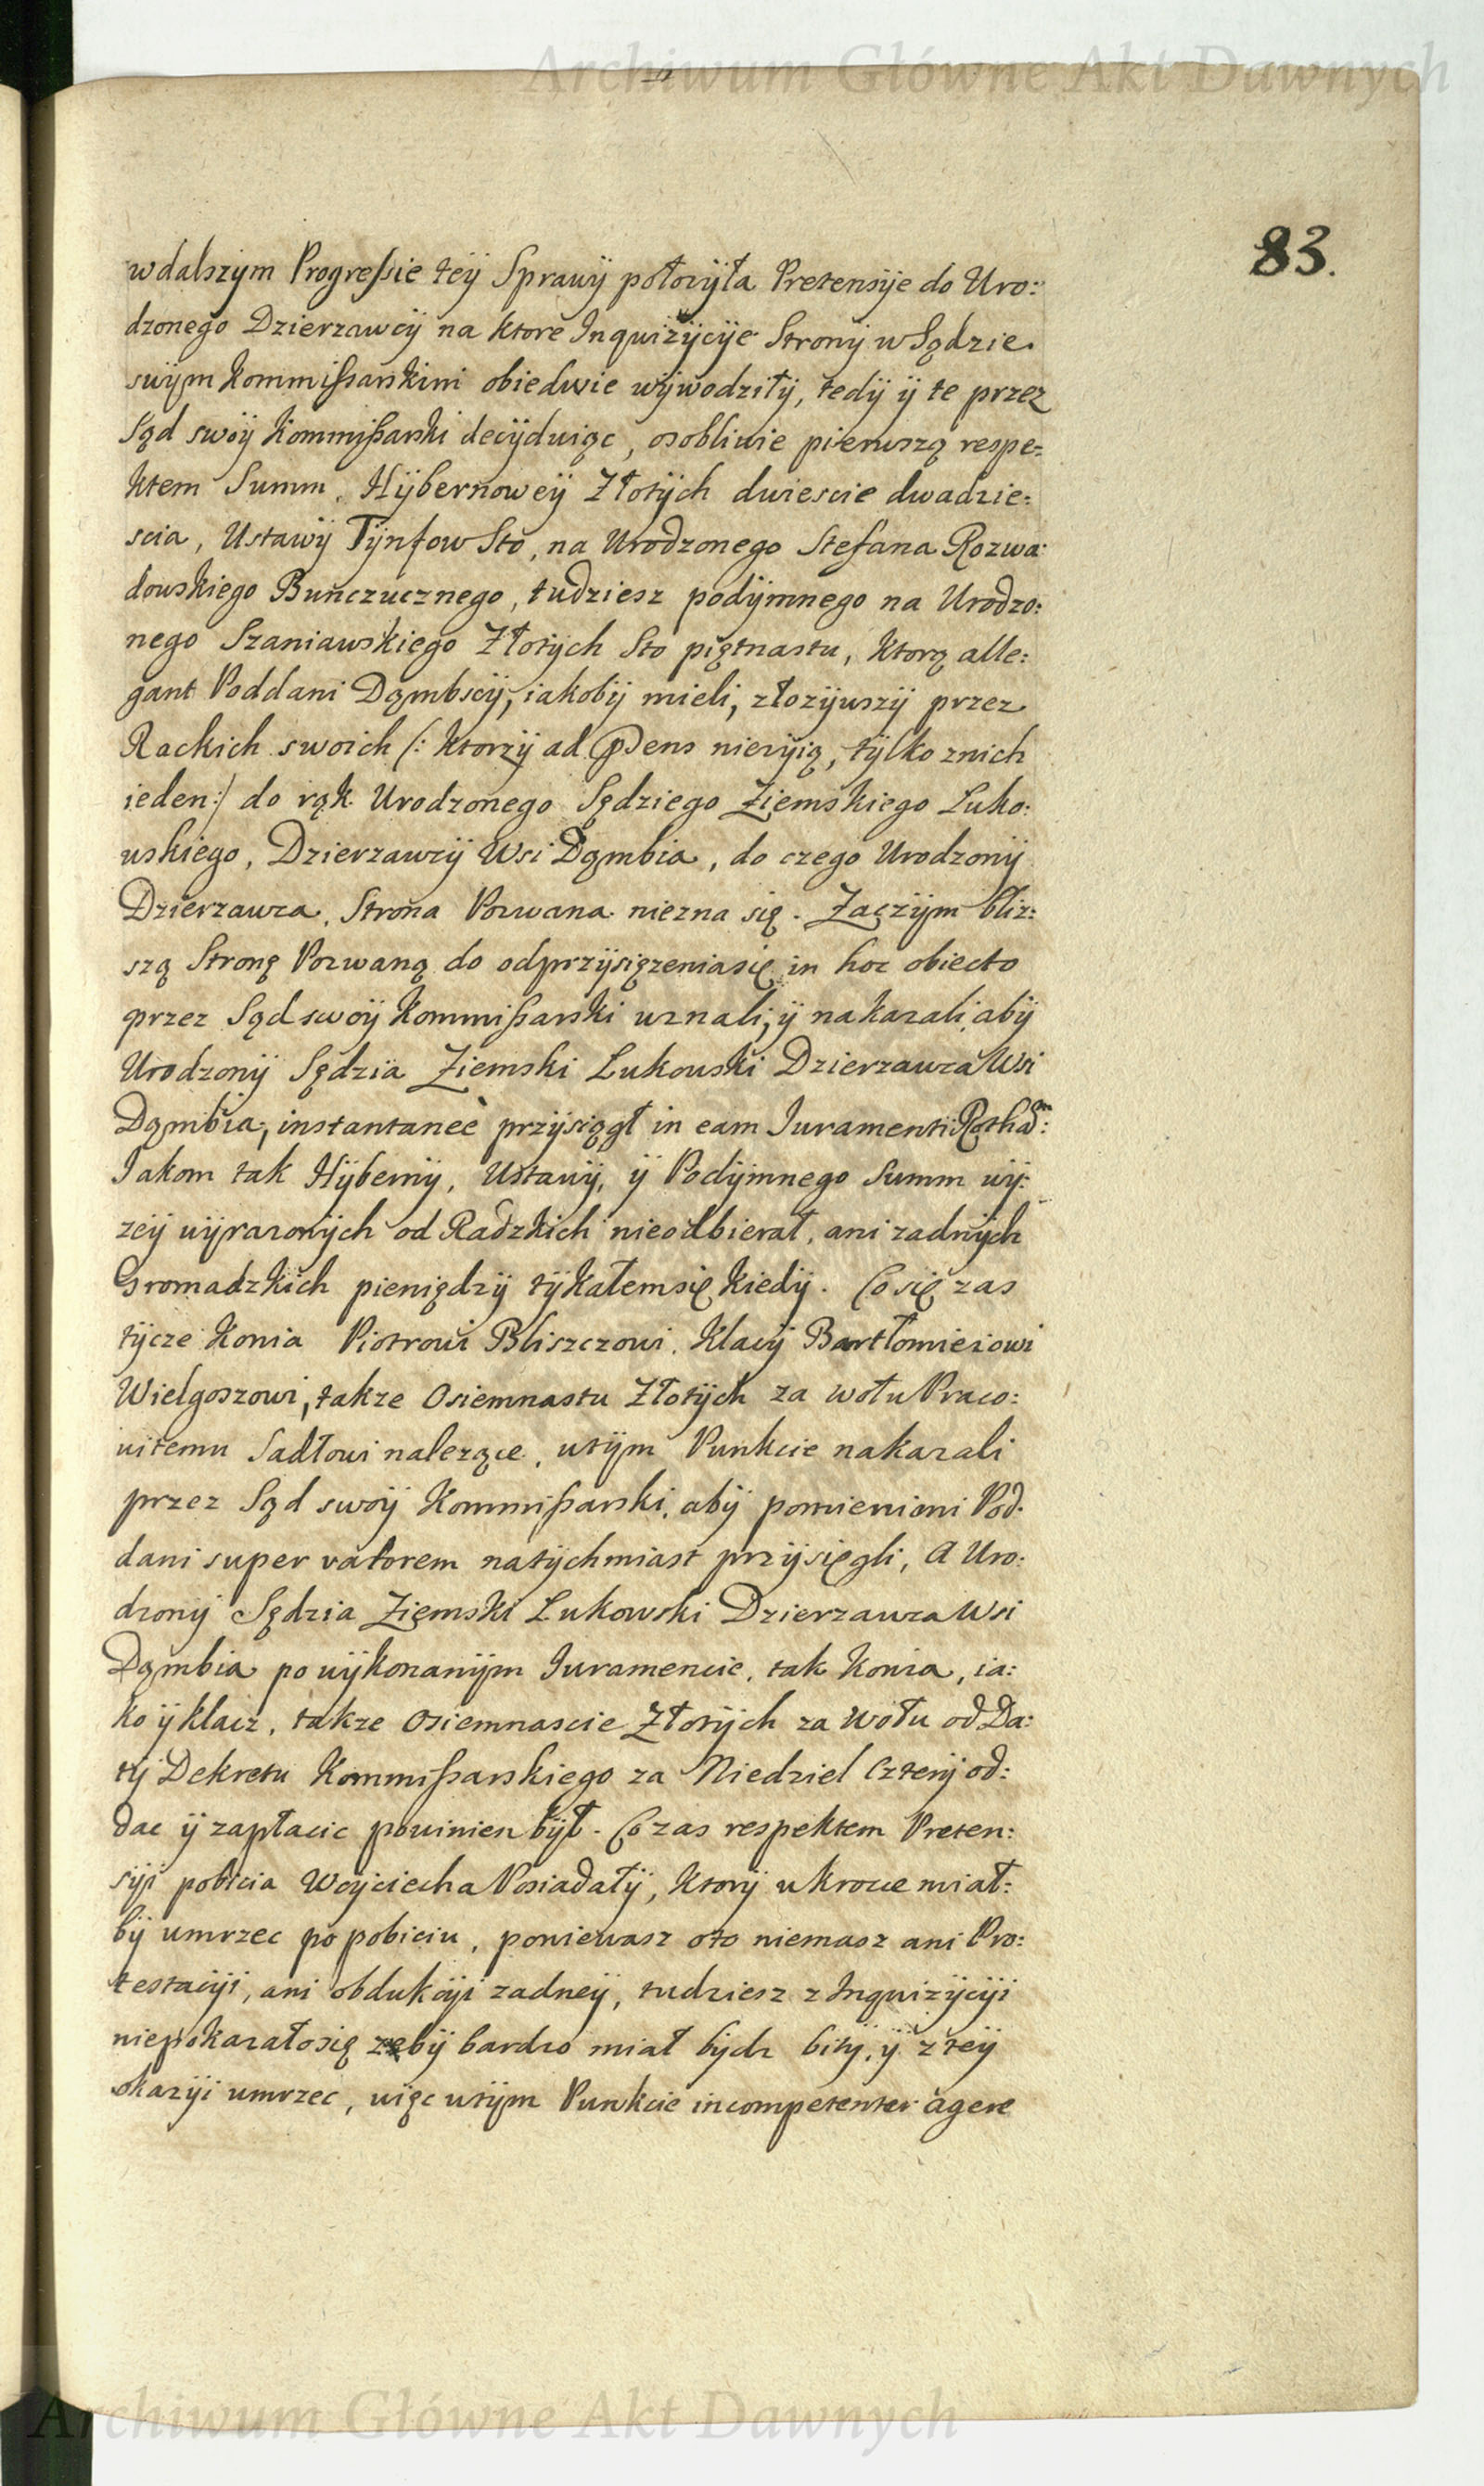 Archiwum Główne Akt Dawnych
83.
w dalszym Progressie teÿ Sprawÿ położÿła Pretensÿe do Uro:
dzonego Dzierzawcÿ na ktore Inquizÿcÿe Stronÿ w Sądzie
swÿm Kommissarskim obiedwie wÿwodziłÿ, tedÿ ÿ te przez
Sąd swoÿ Kommissarski decÿduiąc, osobliwie pierwszą respe=
ktem Summ, Hÿbernoweÿ Złotÿch dwiescie dwadzie:
scia, Ustawÿ Tÿnfow Sto, na Urodzonego Stefana Rozwa:
dowskiego Bunczucznego, tudziesz podÿmnego na Urodzo:
nego Szaniawskiego Złotÿch Sto piętnastu, ktorą alle:
gant Poddani Dąmbscÿ, iakobÿ mieli, złozÿwszÿ przez
Rackich swoich /: ktorzÿ ad Pdens nieżÿią, tÿlko znich
ieden:/ do rąk Urodzonego Sędziego Ziemskiego Łuko:
wskiego, Dzierzawcÿ Wsi Dąmbia, do czego Urodzonÿ
Dzierzawca, Strona Pozwana niezna się. Zaczÿm bliz:
szą Stronę Pozwaną do odprzÿsiężeniasię in hoc obiecto
przez Sąd swoÿ Kommissarski uznali, ÿ nakazali, abÿ
Urodzonÿ Sędzia Ziemski Lukowski Dzierzawca Wsi
Dąmbia, instantaneè przÿsiągł in eam Juramenti Rotham:
Jakom tak Hÿbernÿ, Ustawÿ, ÿ Podÿmnego Summ wÿ:
zeÿ wÿrazonÿch od Radzkich nieodbierał, ani zadnÿch
Gromadzkich pieniędzÿ tÿkałemsię kiedÿ. Co się zas
tÿcze Konia Piotrowi Bliszczowi, Klacÿ Bartłomieiowi
Wielgoszowi, takze Osiemnastu Złotÿch za wołu Praco:
witemu Sadłowi nalezące, wtÿm Punkcie nakazali
przez Sąd swoÿ Kommissarski, abÿ pomienieni Pod:
dani super valorem natÿchmiast przÿsięgli, A Uro:
dzonÿ Sędzia Ziemski Lukowski Dzierzawca Wsi
Dąmbia po wÿkonanÿm Juramencie, tak Konia, ia:
ko ÿ klacz, takze Osiemnascie Złotÿch za Wołu od Da:
tÿ Dekretu Kommissarskiego za Niedziel Czterÿ od:
dac ÿ zapłacic powinien bÿł. Co zas respektem Preten:
sÿi pobicia Woÿciecha Posiadałÿ, ktorÿ wkrotce miał:
bÿ umrzec po pobiciu, poniewasz oto niemasz ani Pro:
testacÿi, ani obdukcÿi zadneÿ, tudziesz z Inquizÿcÿi
niepokazałosię zebÿ bardzo miał bÿdz bitÿ, ÿ z teÿ
okazÿi umrzec, więc wtÿm Punkcie incompetenter agere
Archiwum Główne Akt Dawnych